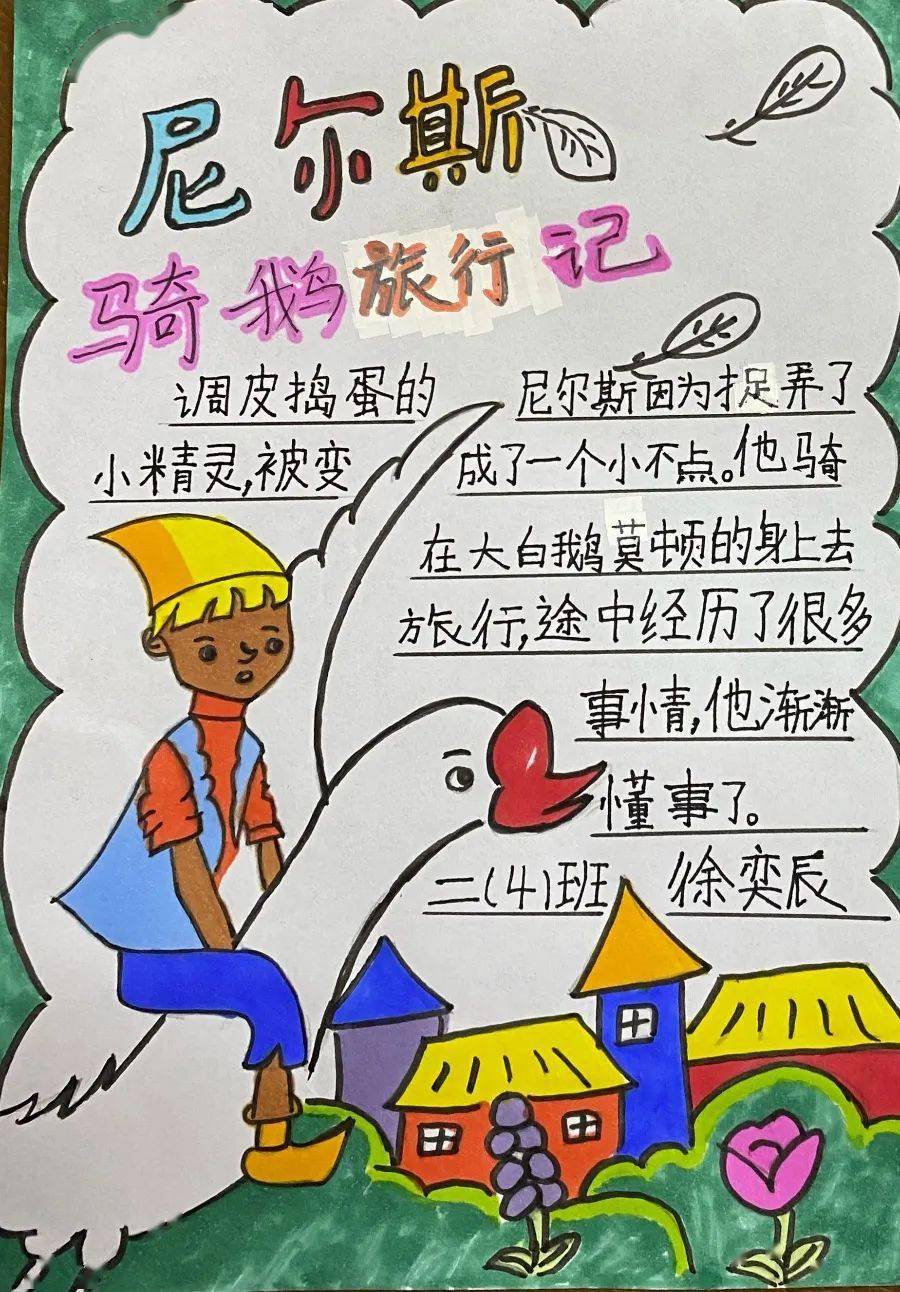 尼尔斯
骑鹅旅行记
调皮捣蛋的 尼尔斯因为捉弄了
小精灵,被变 成了一个小不点。他骑
在大白鹅莫顿的身上去
旅行,途中经历了很多
事情,他渐渐
懂事了。
二(4)班 徐奕辰